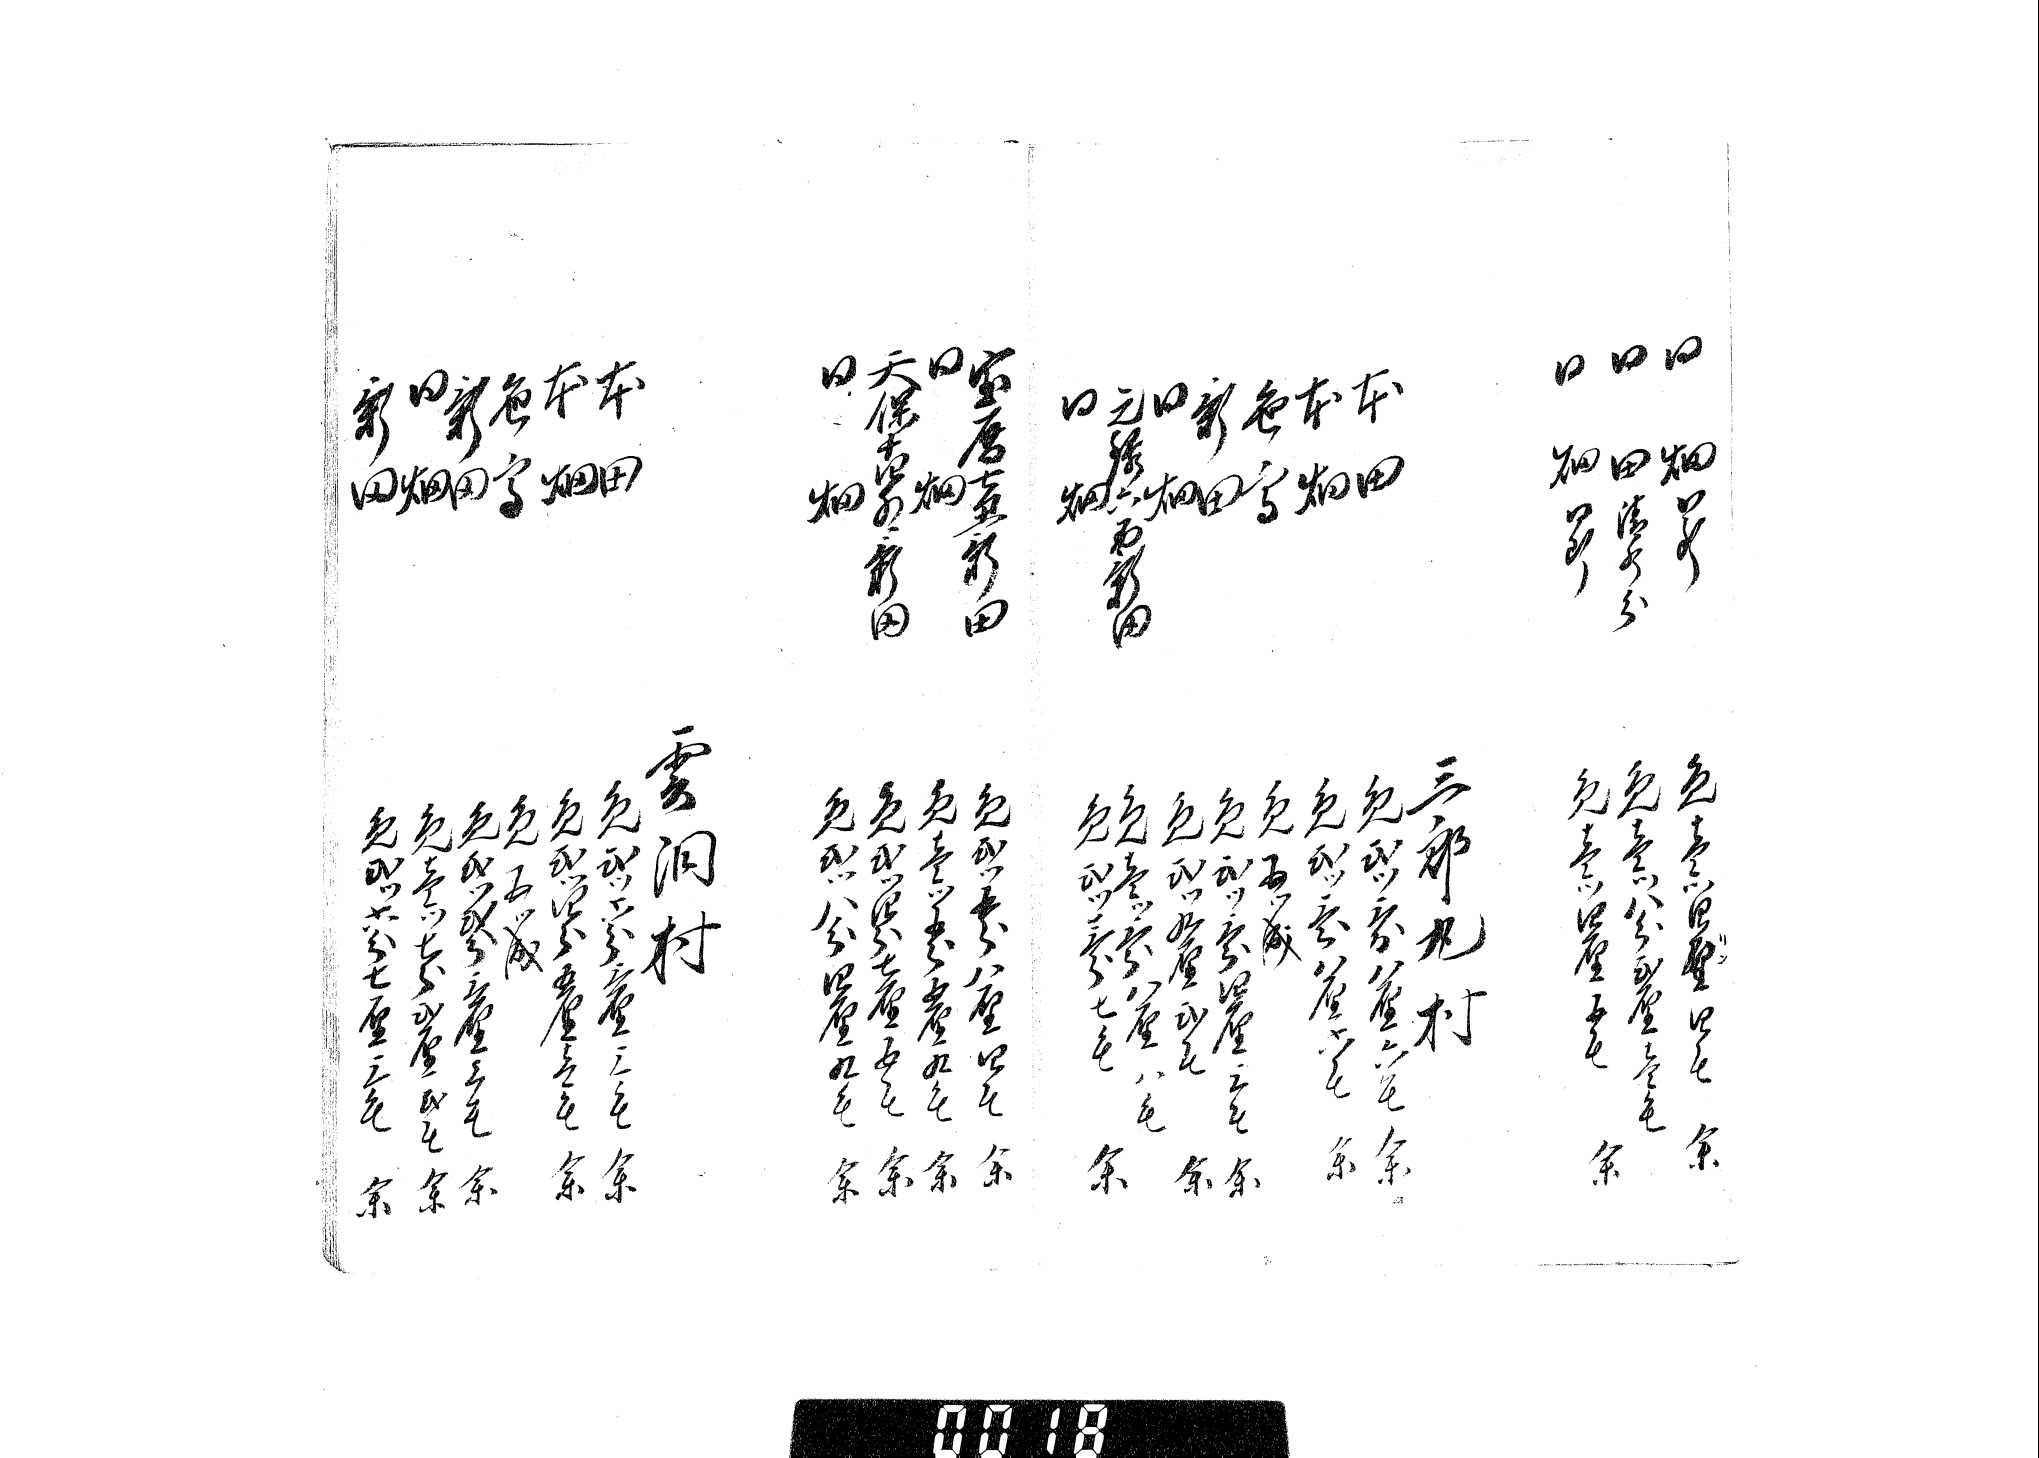 同 畑 同断 免壱ツ四厘四毛 余
同 田 清水分 免壱ツ八分弐厘壱毛
同 畑 同断 免壱ツ四厘五毛 余
三郎丸村
本田 免弐ツ三分八厘六毛 余
本畑 免弐ツ三分八厘六毛 余
色高 免五ツ成
新田 免弐ツ三分四厘三毛 余
同畑 免弐ツ九厘弐毛 余
元禄六酉新田 免壱ツ三分八厘八毛
同畑 免弐ツ三分七毛 余
宝暦七丑新田 免弐ツ五分八厘四毛 余
同畑 免壱ツ五分五厘九毛 余
天保十四卯新田 免弐ツ四分七厘五毛 余
同畑 免弐ツ八分四厘九毛 余
雲洞村
本田 免弐ツ六分三厘三毛 余
本畑 免弐ツ四分五厘壱毛 余
色高 免五ツ成
新田 免弐ツ弐分三厘三毛 余
同畑 免壱ツ七分弐厘弐毛 余
新田 免弐ツ六分七厘三毛 余
0018